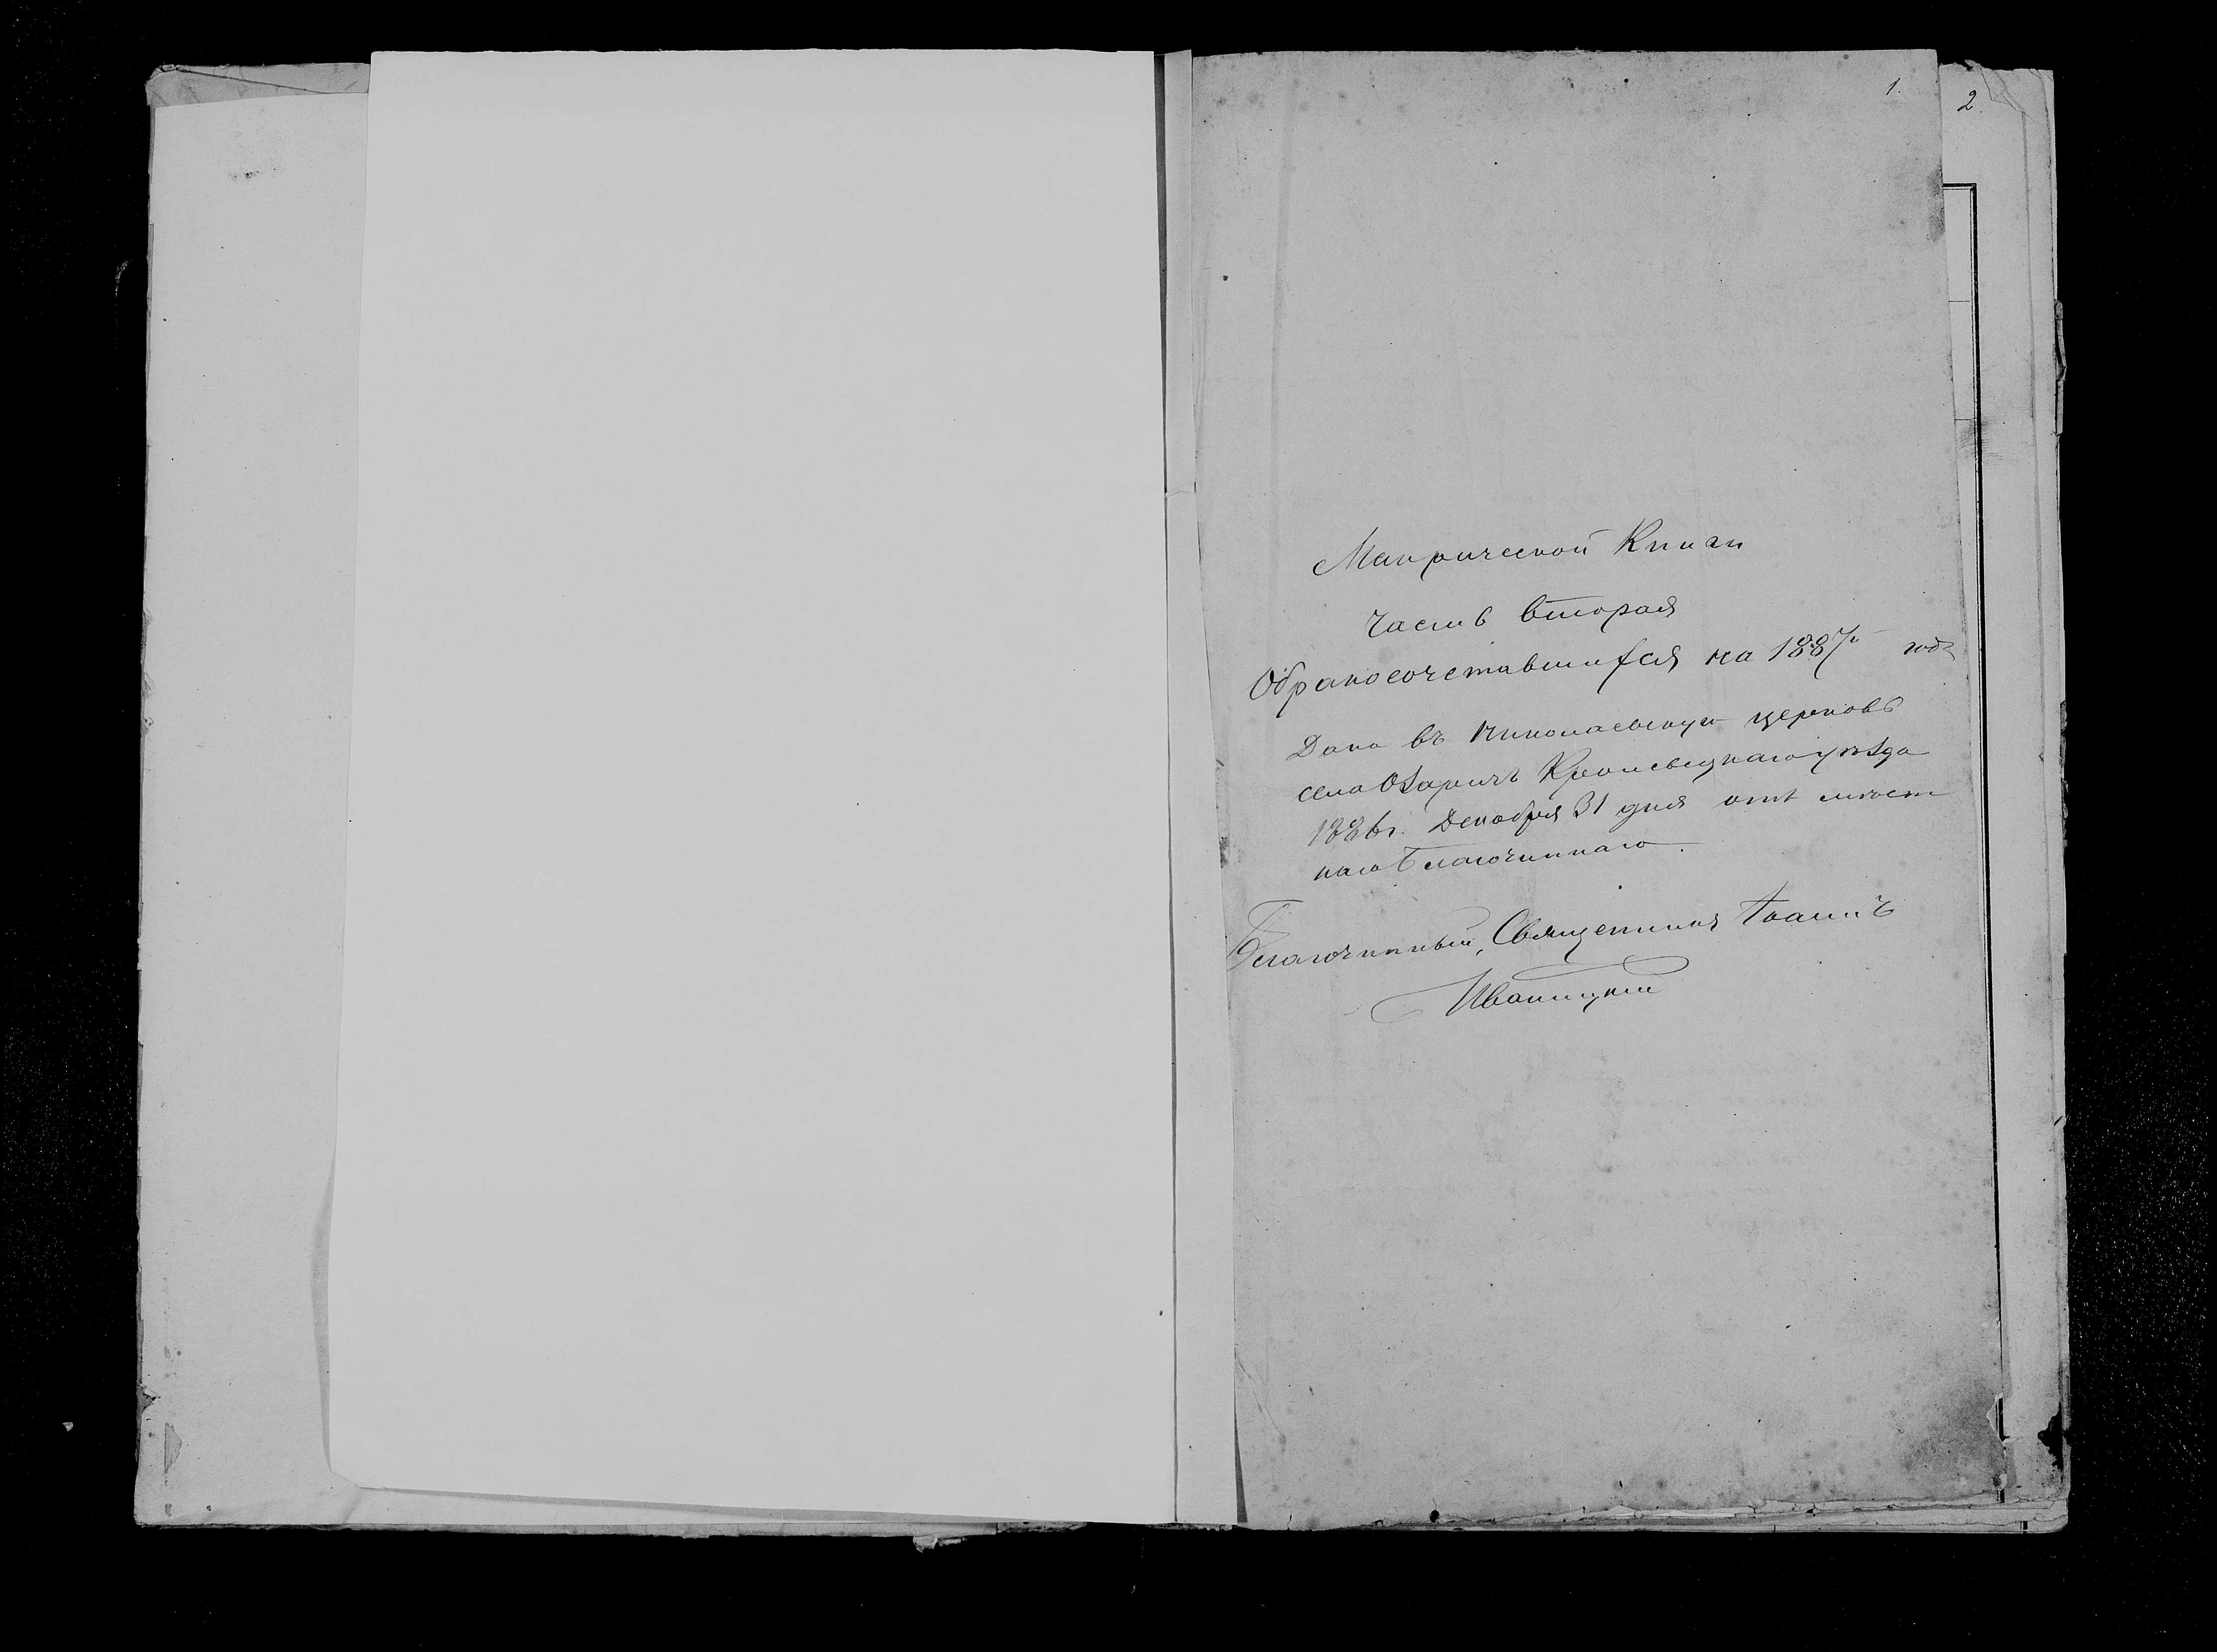 1.
2.
Метрической Книги
часть вторая
О бракосочетавшихся на 1887й годъ
Дана въ Николаевскую церковь
села Озаричъ Кролевецкаго уѣзда
1886 г. Декабря 31 дня отъ мѣст
наго Благочиннаго.
Благочинный, Священникъ Іоаннъ
Иваницкій